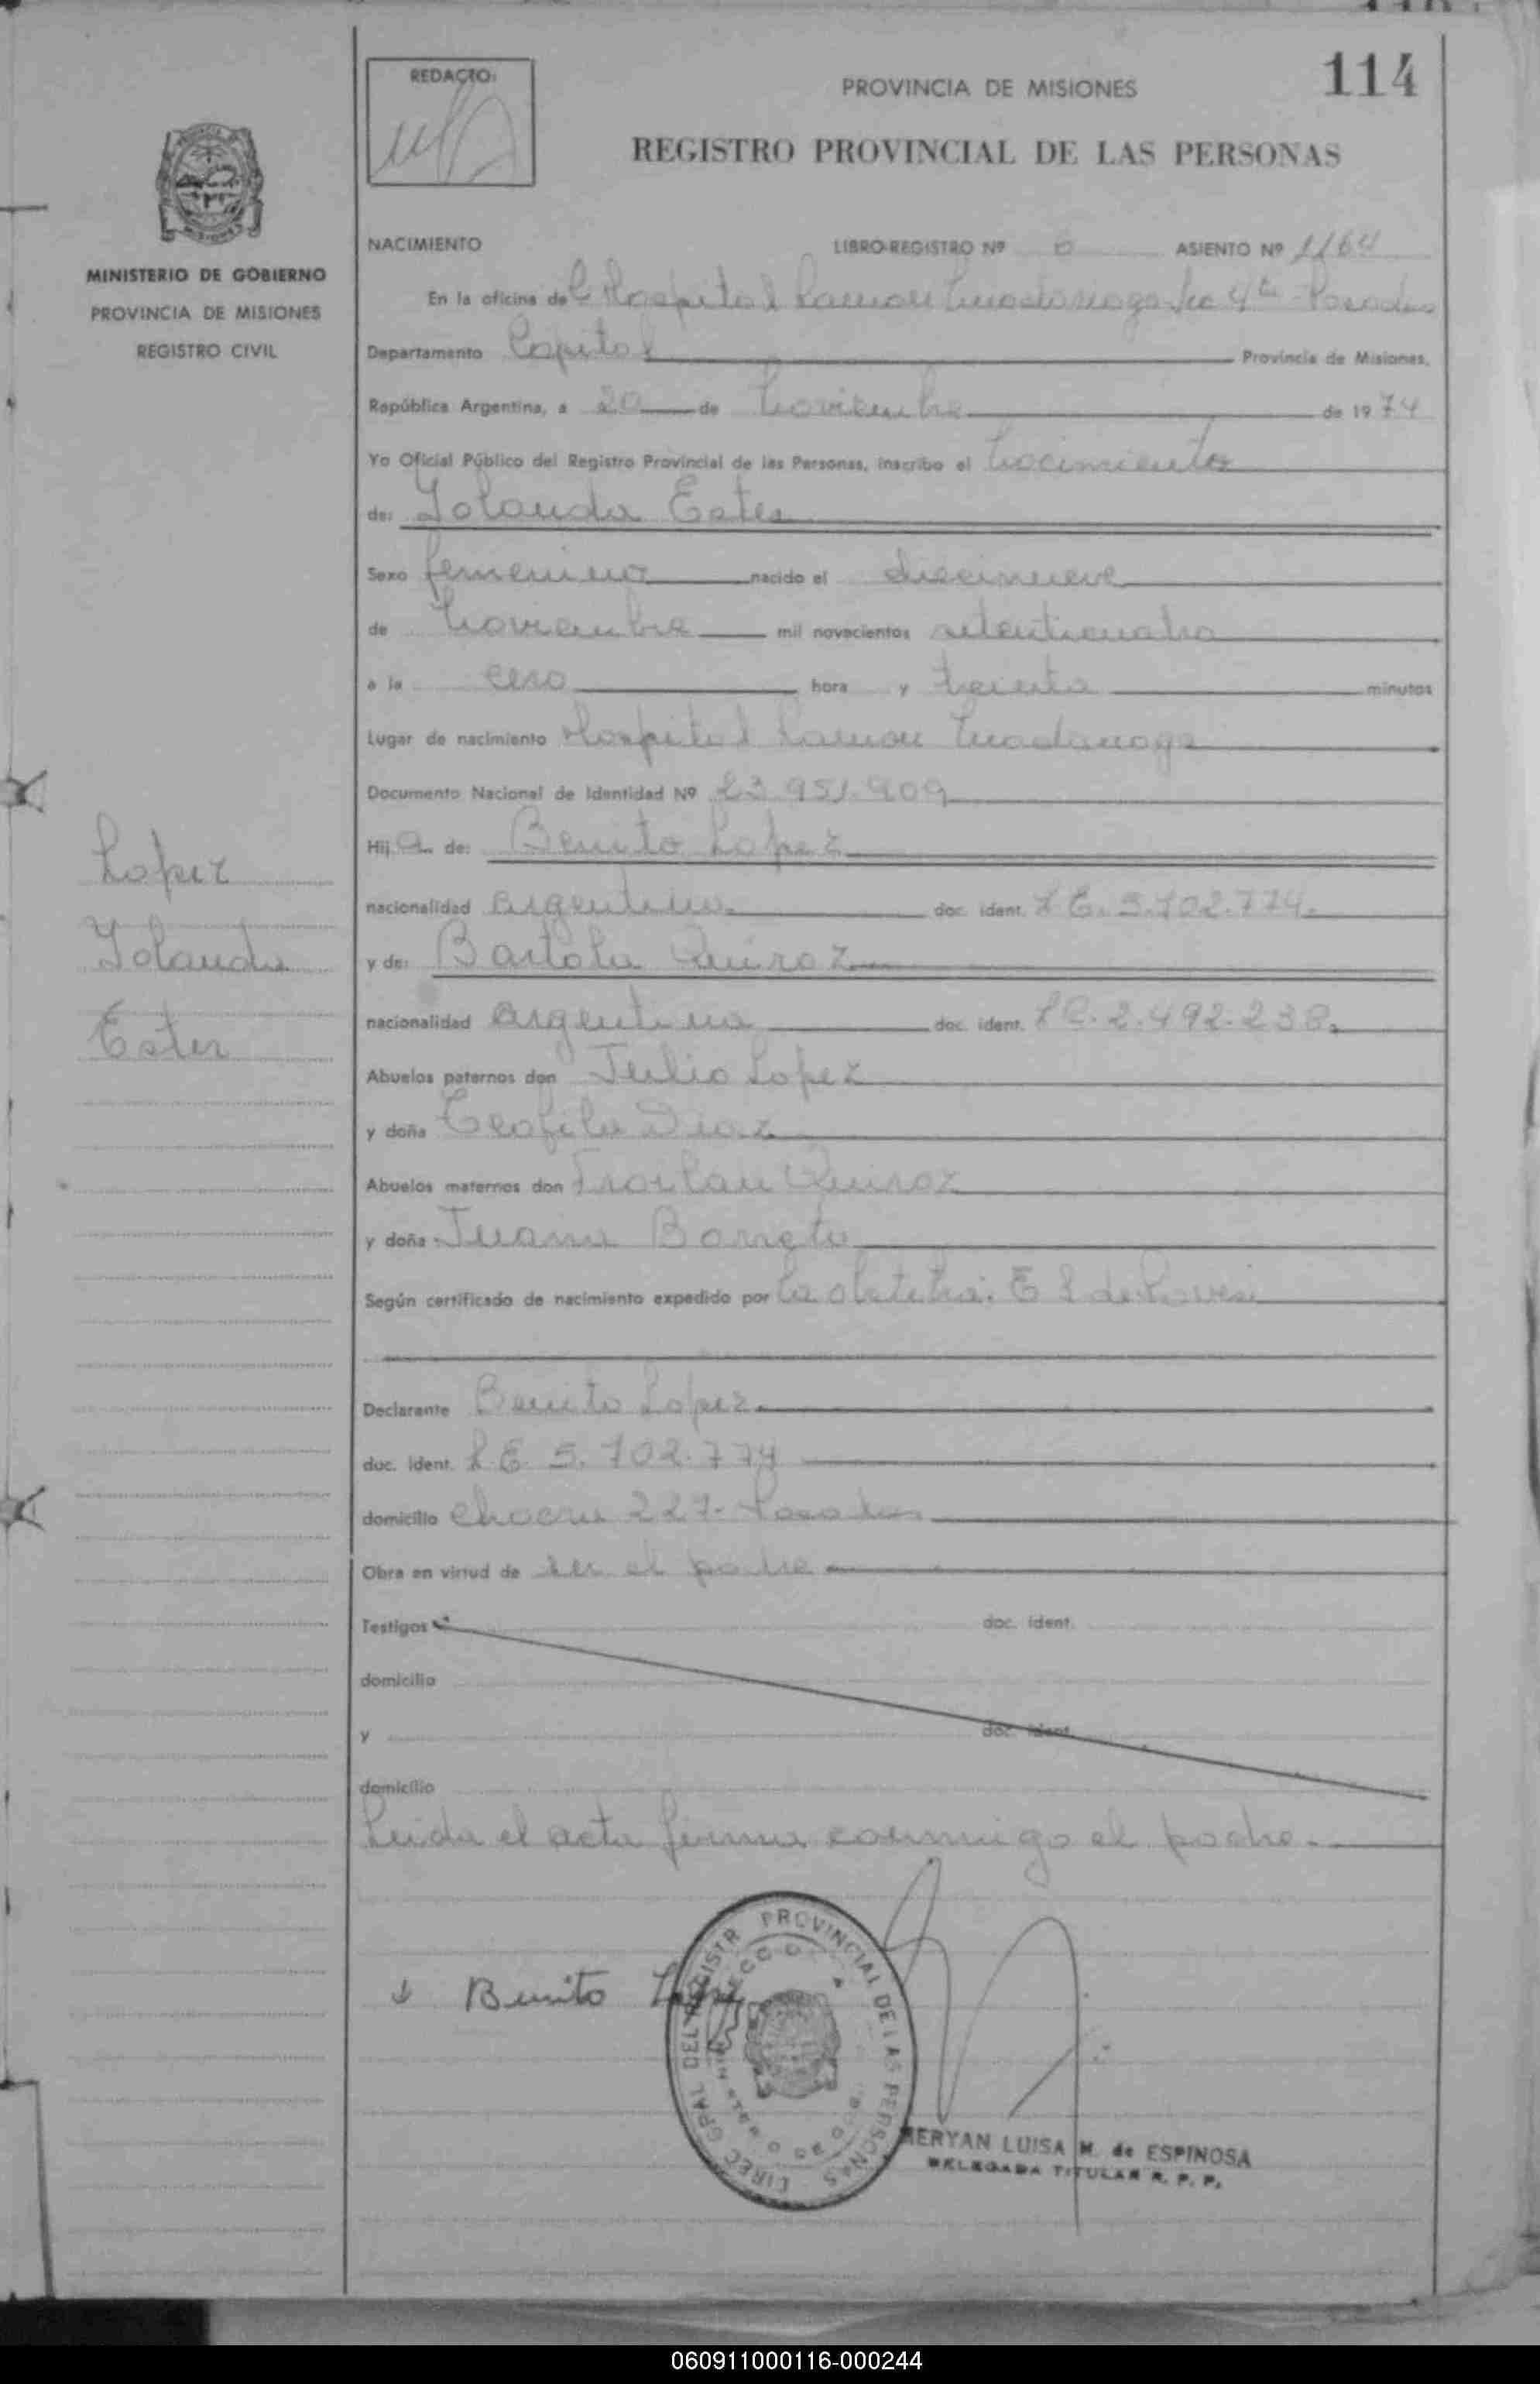 114
REDACTO:
PROVINCIA DE MISIONES
REGISTRO PROVINCIAL DE LAS PERSONAS
MINISTERIO DE GOBIERNO
PROVINCIA DE MISIONES
REGISTRO CIVIL
NACIMIENTO LIBRO-REGISTRO Nº 6 ASIENTO Nº 1164
En la oficina del Hospital Ramon Madariaga Sec 4ta Posadas
Departamento Capital Provincia de Misiones,
República Argentina, a 20 de Noviembre de 1974
Yo Oficial Público del Registro Provincial de las Personas, inscribo el Nacimiento
de: Yolanda Ester
Sexo femenino nacido el diecinueve
de Noviembre mil novecientos setenticuatro
a la cero hora y treinta minutos
Lugar de nacimiento Hospital Ramon Madariaga
Documento Nacional de Identidad Nº 23.951.909
Hija de: Benito Lopez
nacionalidad argentino doc. ident. L E. 5.702.774.
y de: Bartola Quiroz
nacionalidad argentina doc. ident. LC. 2.492.238.
Abuelos paternos don Julio Lopez
y doña Teofila Diaz
Abuelos maternos don Froilan Quiroz
y doña Juana Barreto
Según certificado de nacimiento expedido por la obstetra: E L de
Declarante Benito Lopez
doc. ident. L.E 5.702.774
domicilio chacra 227- Posadas
Obra en virtud de ser el padre
Testigos doc. ident.
domicilio
y doc. ident.
domicilio
Leida el acta firma conmigo el padre.
Lopez
Yolanda
Ester
Benito Lopez
DIREC GRAL DEL REGISTR PROVINCIAL DE LAS PERSONAS
MERYAN LUISA M. de ESPINOSA
DELEGADA TITULAR R. P. P.
060911000116-000244